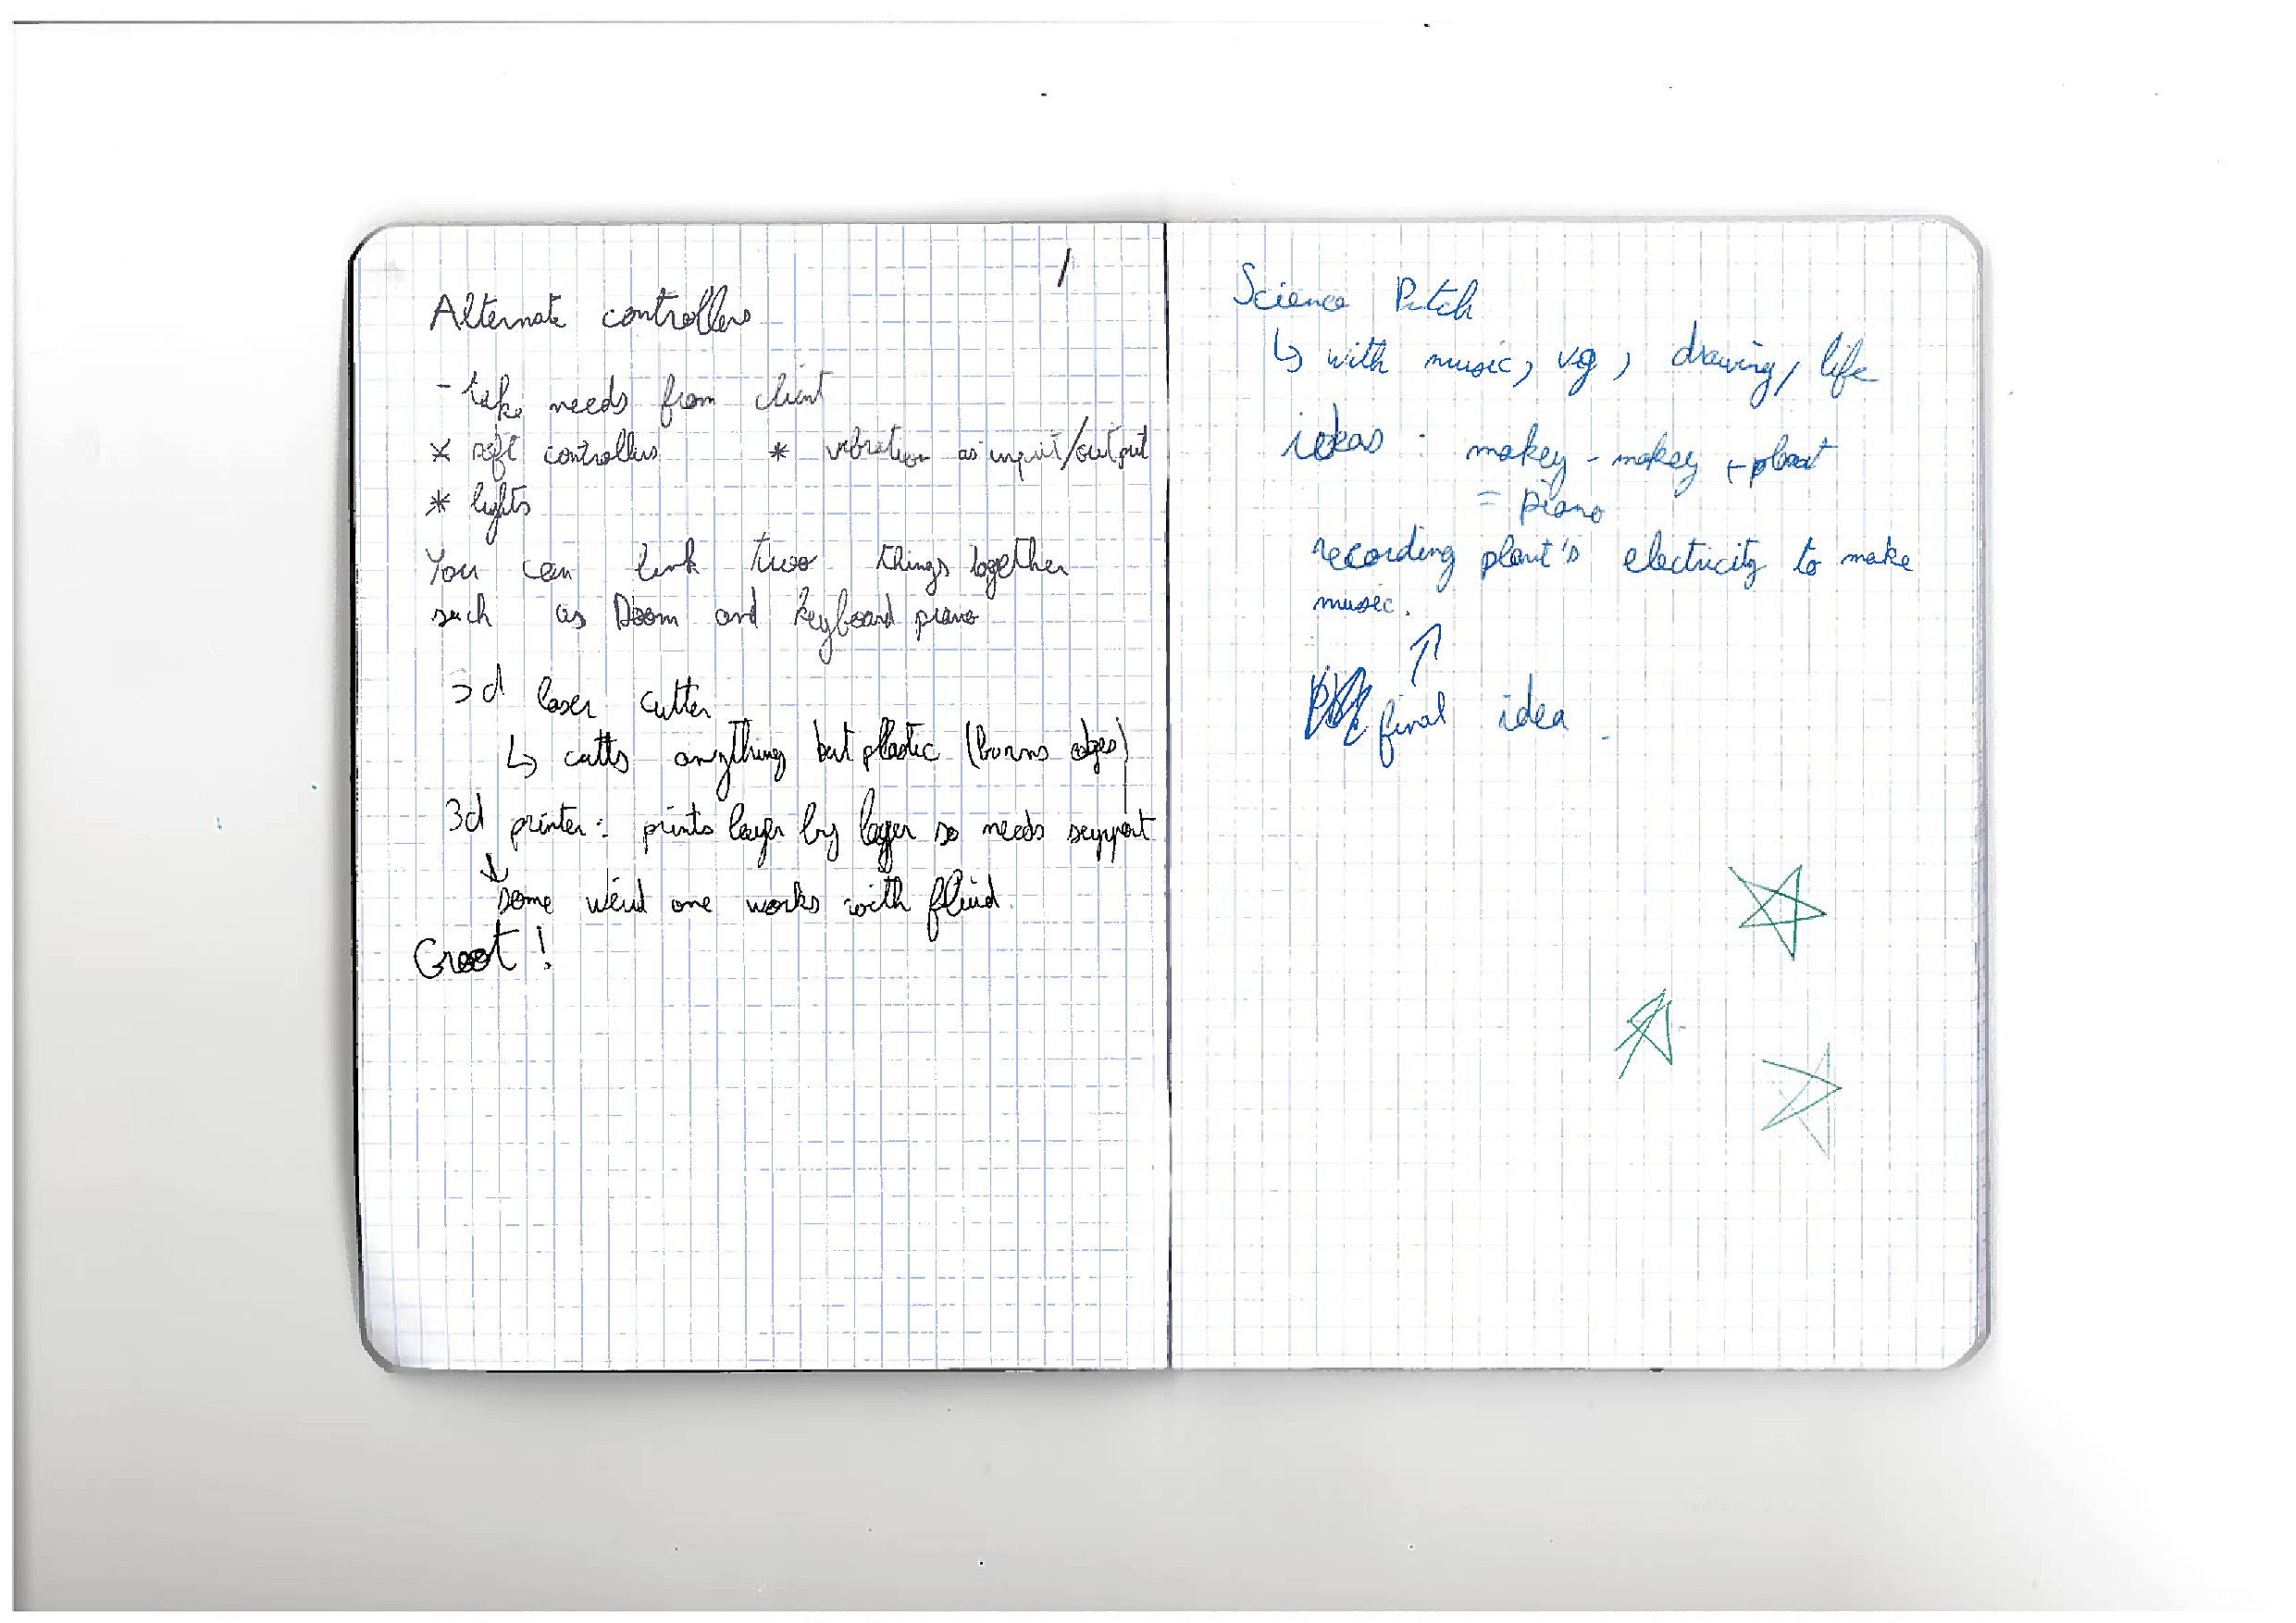 /
Alternate controllers
- take needs from client
* soft controllers * vibration as input/output
* lights
You can link two things together
such as Doom and keyboard piano
3d laser cutter
↳ cutts anything but plastic (burns edges)
3d printer : prints layer by layer so needs support
↓
some weird one works with fluid.
Groot !
Science Pitch
↳ with music, vg, drawing, life
ideas : makey - makey + plant
= piano
recording plant's electricity to make
music.
↑
final idea.